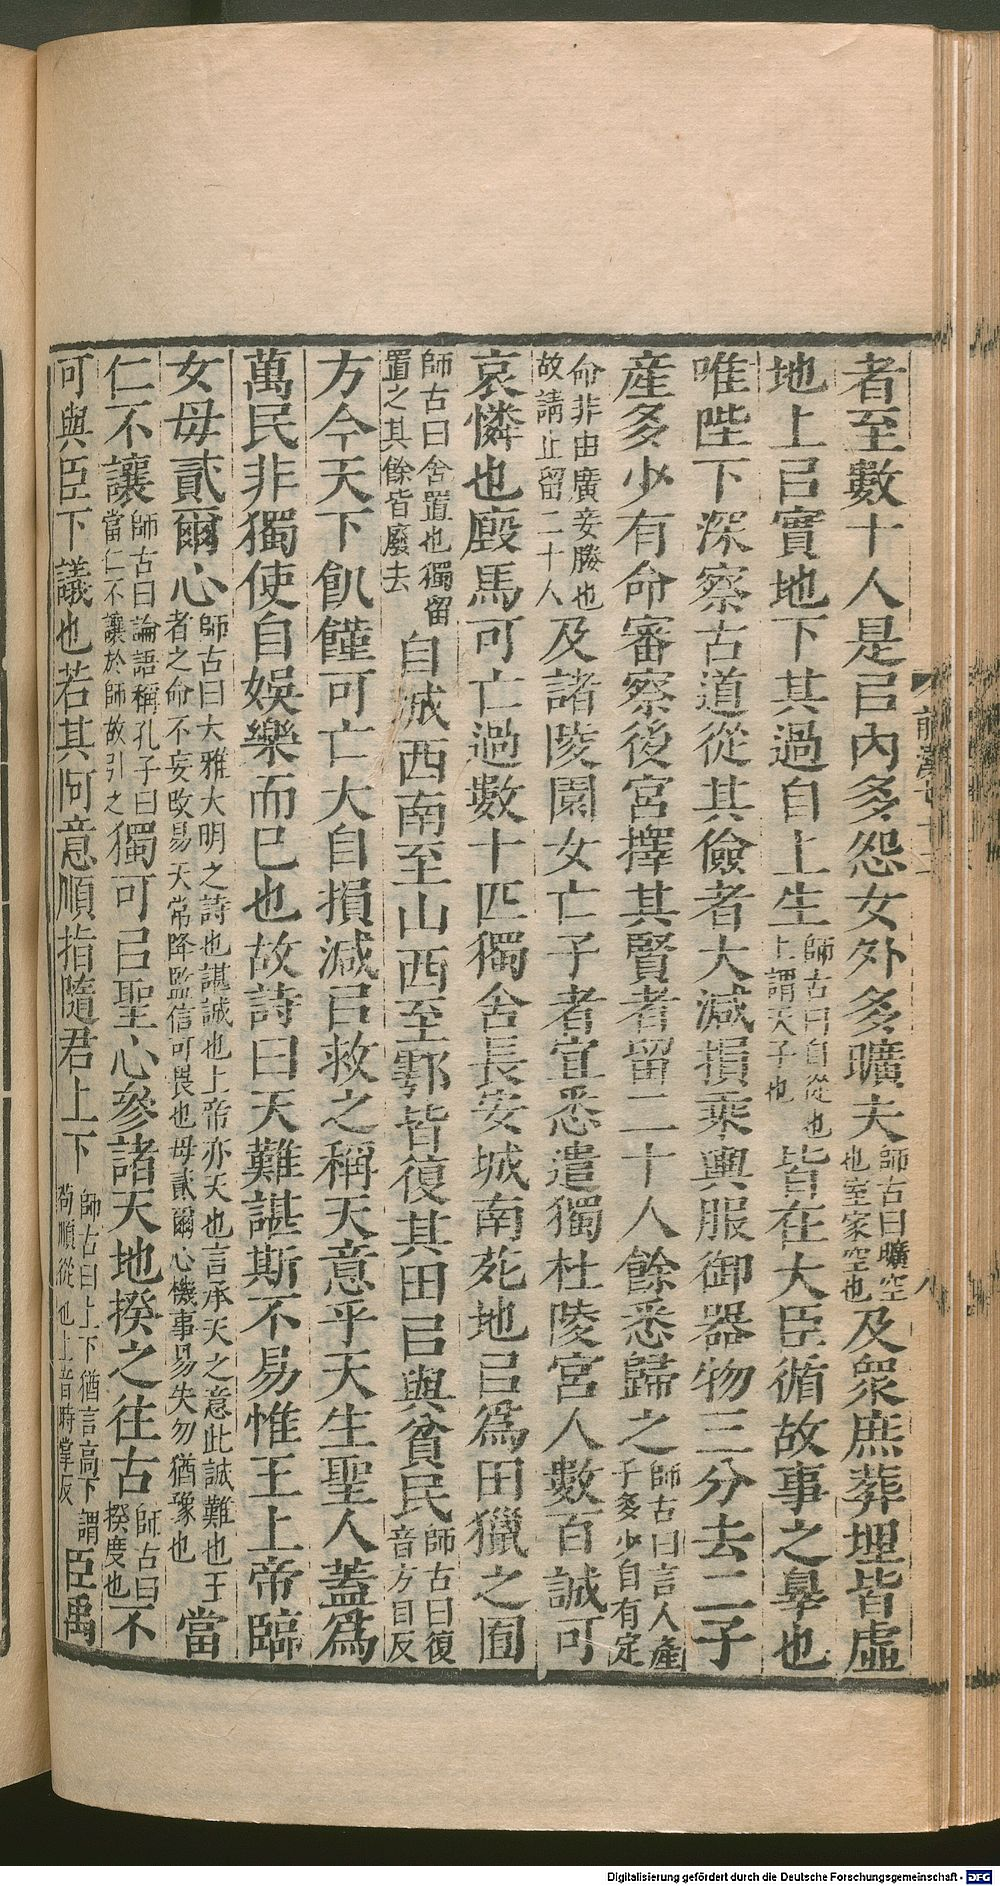 者至數十人是㠯內多怨女外多曠夫師古曰曠空也室家空也及衆庶葬埋皆虛
地上㠯實地下其過自上生師古曰自從也上謂天子也皆在大臣循故事之辠也
唯陛下深察古道從其儉者大減損乘輿服御器物三分去二子
產多少有命審察後宮擇其賢者留二十人餘悉歸之師古曰言人產子多少自有定
命非由廣妾媵也故請止留二十人及諸陵園女亡子者宜悉遣獨杜陵宮人數百誠可
哀憐也廄馬可亡過數十匹獨舍長安城南苑地㠯爲田獵之囿
師古曰舍置也獨留置之其餘皆廢去自城西南至山西至鄠皆復其田㠯與貧民師古曰復音方目反
方今天下飢饉可亡大自損減㠯救之稱天意乎天生聖人蓋爲
萬民非獨使自娛樂而已也故詩曰天難諶斯不易惟王上帝臨
女毋貳爾心師古曰大雅大明之詩也諶誠也上帝亦天也言承天之意此誠難也王者之命不妄改易天常降監信可畏也毋貳爾心機事易失勿猶豫也當
仁不讓師古曰論語稱孔子曰當仁不讓於師故引之獨可㠯聖心參諸天地揆之往古師古曰揆度也不
可與臣下議也若其阿意順指隨君上下師古曰上下猶言高下謂苟順從也上音時掌反臣禹
前漢七十二
八
Digitalisierung gefördert durch die Deutsche Forschungsgemeinschaft - DFG